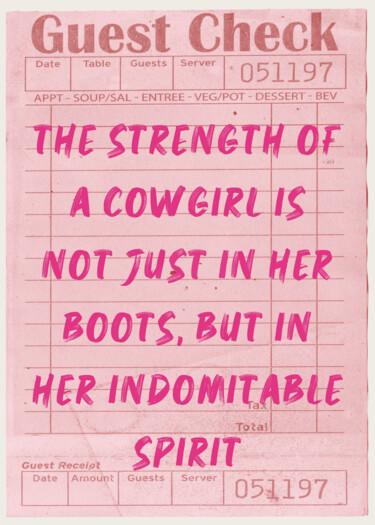 Guest Check
Date Table Guests Server 051197
APPT - SOUP/SAL - ENTREE - VEG/POT - DESSERT - BEV
THE STRENGTH OF
A COWGIRL IS
NOT JUST IN HER
BOOTS, BUT IN
HER INDOMITABLE
Tax
Total
SPIRIT
Guest Receipt
Date Amount Guests Server 051197